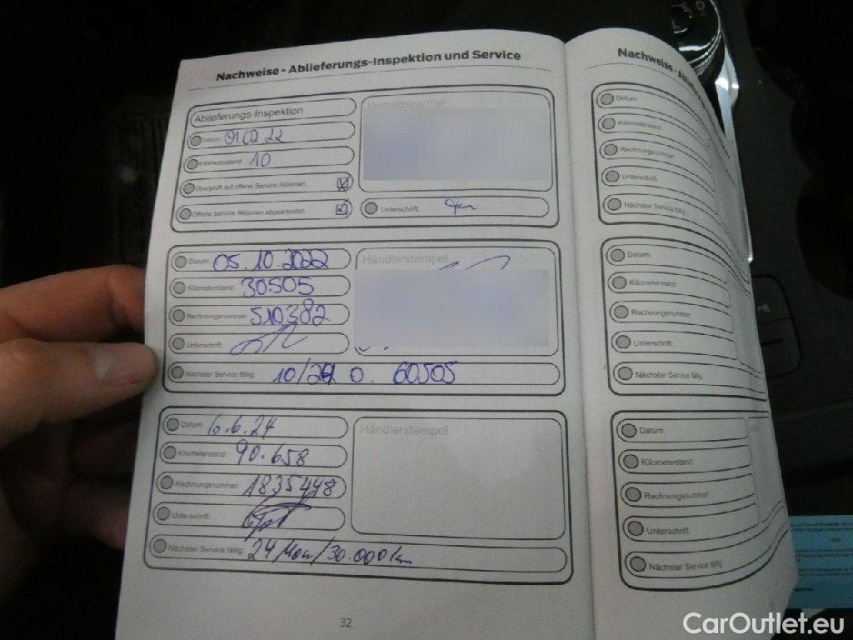 Nachweise - Ablieferungs-Inspektion und Service
Ablieferungs-Inspektion
Vertriebspartner
Datum:
Kilometerstand: 10
Überprüft auf offene Service Aktionen:
Offene Service Aktionen abgearbeitet:
Unterschrift:
Datum: 05.10.2022
Händlerstempel
Kilometerstand: 30505
Rechnungsnummer: 510382
Unterschrift:
Nächster Service fällig: 60505
Datum: 6.6.24
Händlerstempel
Kilometerstand: 90.658
Rechnungsnummer: 1835448
Unterschrift:
Nächster Service fällig: 24 Mon/30.000km
32
Nachweise - Ab
Datum:
Kilometerstand:
Rechnungsnummer:
Unterschrift:
Nächster Service fällig:
Datum:
Kilometerstand:
Rechnungsnummer:
Unterschrift:
Nächster Service fällig:
Datum:
Kilometerstand:
Rechnungsnummer:
Unterschrift:
Nächster Service fällig:
CarOutlet.eu